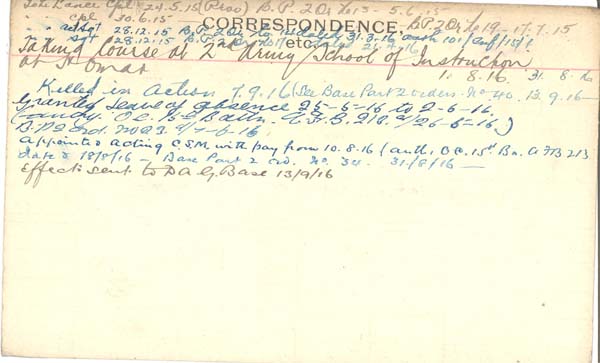 Lance Cpl 24.5.15 (Prov) B.P. 2 Or 5.6.15
" cpl 30.6.15 B.P. 2 Or No 19 - 17.7.15
CORRESPONDENCE
sgt 28.12.15 B.P. 2 Or No dated 31.3.16
sgt 28.12.15 B.P. 2
etc.
Taking Course at 2nd Army School of Instruction
at St Omer 10.8.16. 31.8.16
Killed in Action 7.9.16 (See Base Part 2 orders. No 40. 12.9.16 —
Granted leave of absence 25-5-16 to 2-6-16.
O.C. 15 Battn. 26-5-16.)
B.P. 2 Ord. No 23
Appointed Acting C.S.M with pay from 10.8.16 (auth. O.C. 15th Bn. A FB 213
dated 18/8/16 — Base Part 2 ord. No. 34. 31/8/16 —
Effects sent to D A G. Base 13/9/16